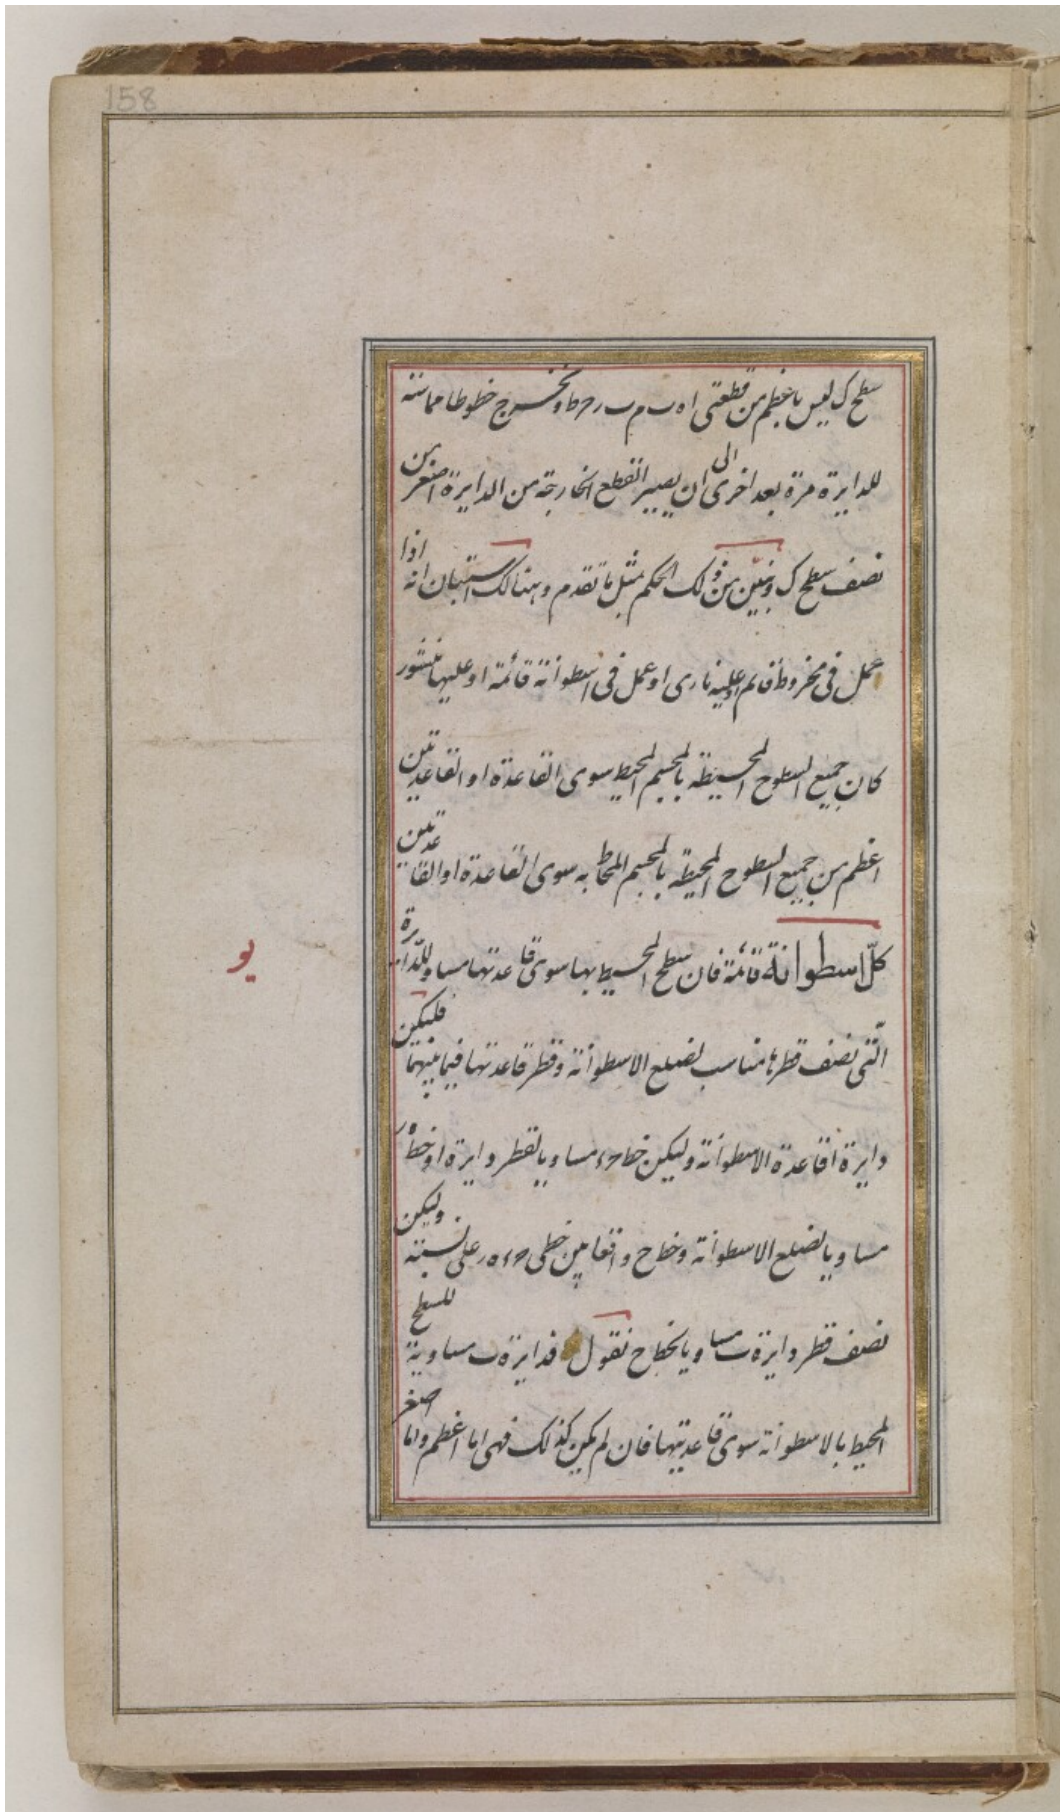 158
سطح ك ليس باعظم من قطعتى اه ب م ب ر ح ط ونخرج خطوطا مماسة
للدايرة مرة بعد اخرى الى ان يصير القطع الخارجة من الدايرة اصغر من
نصف سطح ك ونبيّن من ذلك الحكم بمثل ما تقدم وهنالك استبان انه اذا
عمل فى مخروط قائم او عليه نارى او عمل فى اسطوانة قائمة او عليها منشور
كان جميع السطوح المحيطة بالمجسم المحيط سوى القاعدة او القاعدتين
اعظم من جميع السطوح المحيطة بالمجسم المحاط به سوى القاعدة او القاعدتين
كلّ اسطوانة قائمة فان سطح المحيط بها سوى قاعدتها مساو للدايرة
يو
الّتى نصف قطرها مناسب لضلع الاسطوانة وقطر قاعدتها فيما بينهما فليكن
دايرة ا قاعدة الاسطوانة وليكن خط حء مساويا لقطر دايرة ا وخط ه ر
مساويا لضلع الاسطوانة وخط ح واقعا بين خطى حء ه ر على نسبته وليكن
نصف قطر دايرة ب مساويا لخط ح نقول فدايرة ب مساوية للسطح
المحيط بالاسطوانة سوى قاعدتيها فان لم يكن كذلك فهى اما اعظم واما اصغر